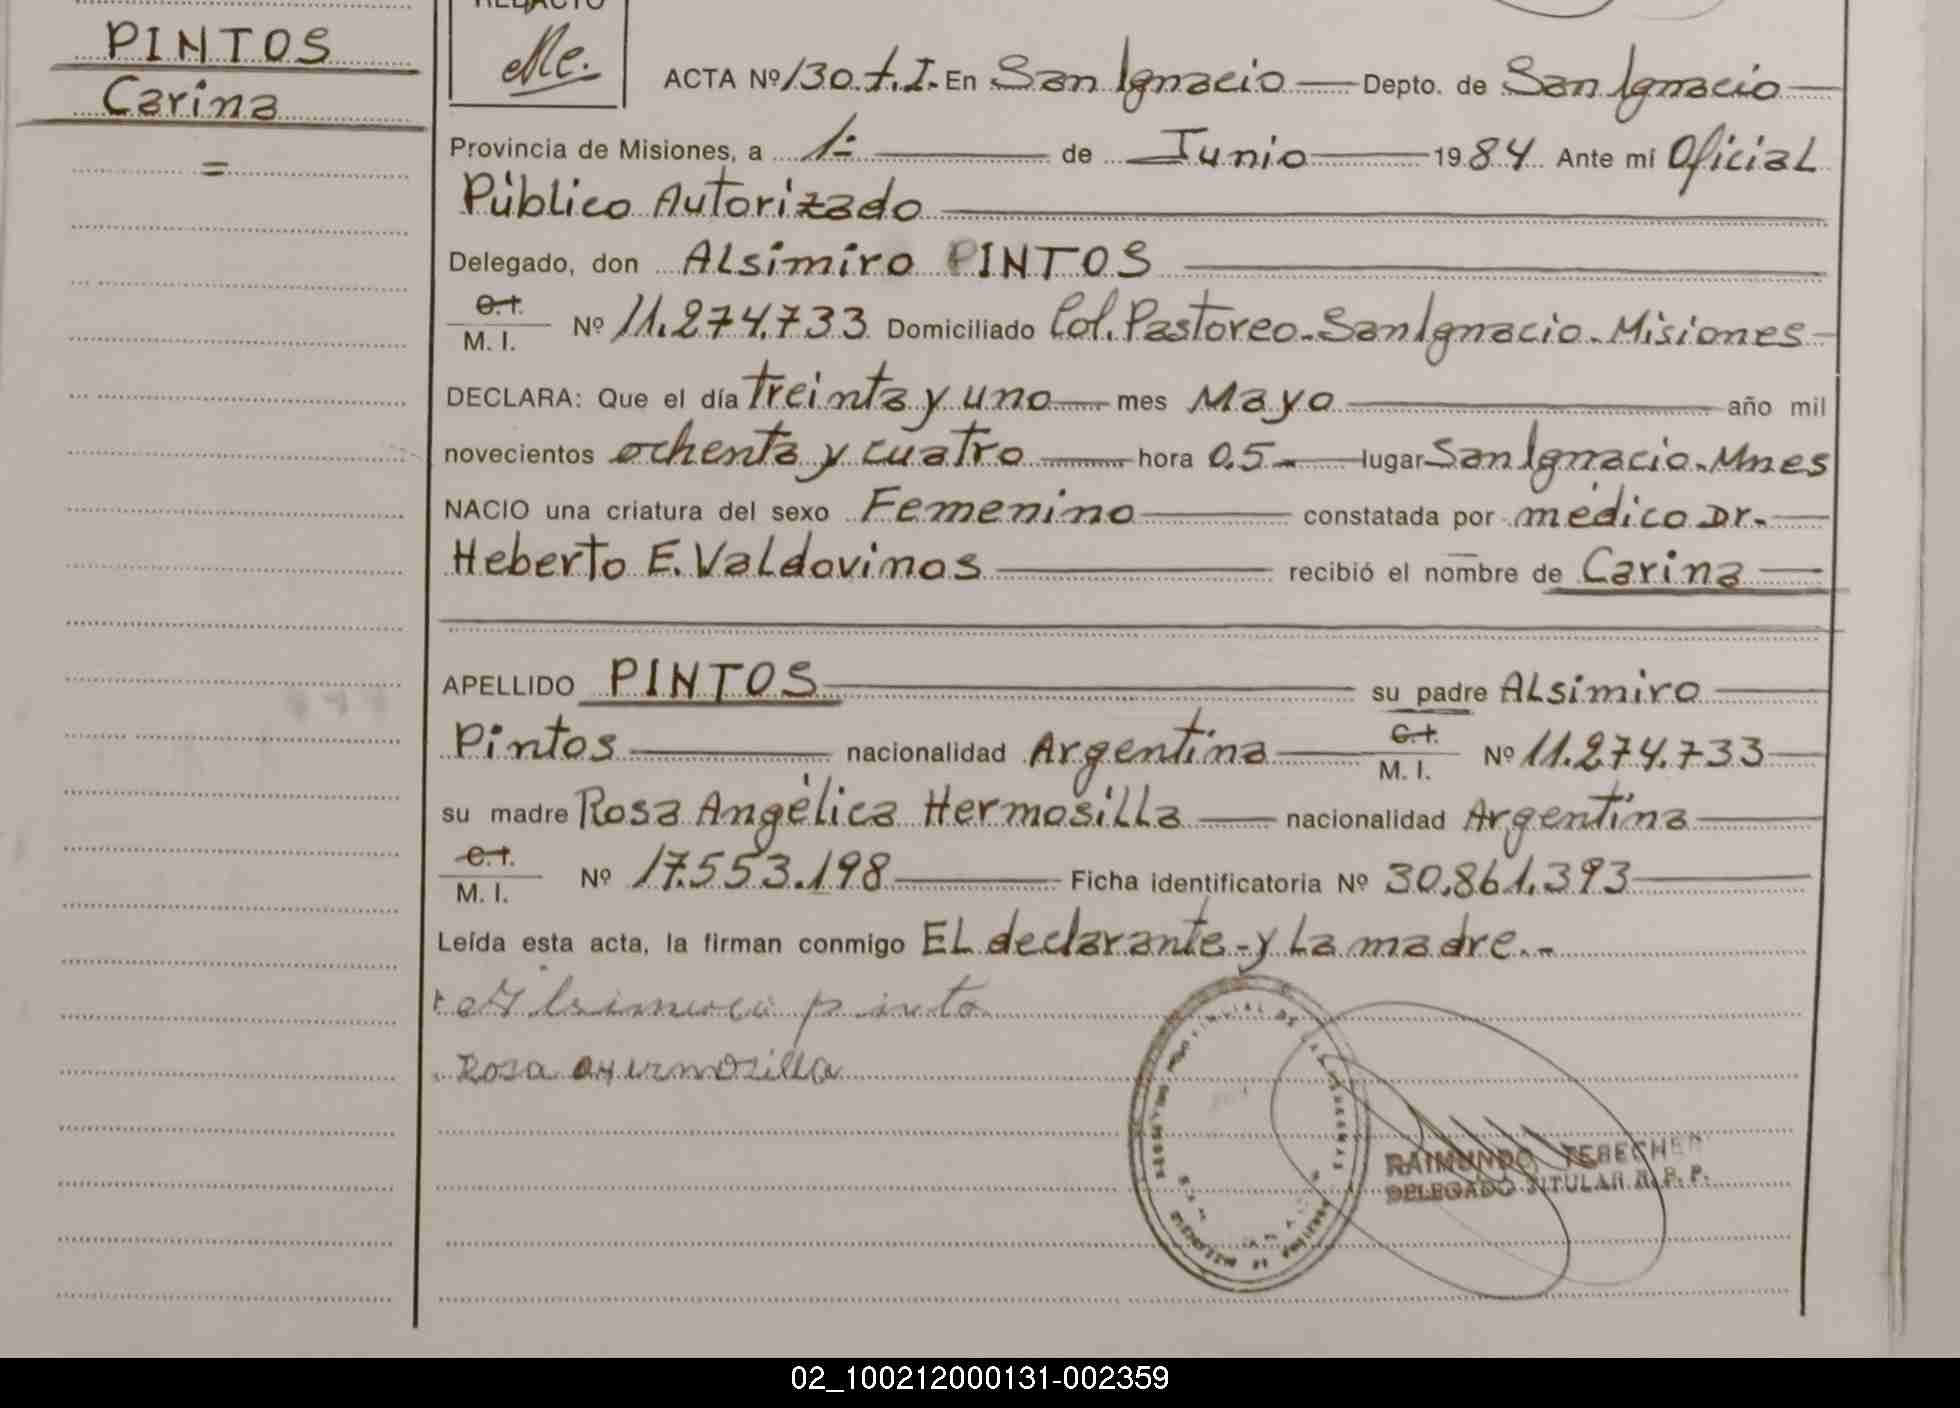 PINTOS
Carina
=
REDACTO
ACTA Nº 130.t.I. En San Ignacio — Depto. de San Ignacio —
Provincia de Misiones, a 1º — de — Junio — 1984 Ante mí Oficial
Público Autorizado —
Delegado, don Alsimiro PINTOS —
C.I.
M. I. Nº 11.274.733 Domiciliado Col. Pastoreo-San Ignacio-Misiones-
DECLARA: Que el día treinta y uno — mes Mayo — año mil
novecientos ochenta y cuatro — hora 0.5 — lugar San Ignacio-Mnes
NACIO una criatura del sexo Femenino — constatada por médico Dr.-
Heberto E. Valdovinos — recibió el nombre de Carina —
APELLIDO PINTOS — su padre Alsimiro —
Pintos — nacionalidad Argentina — C.I.
M. I. Nº 11.274.733 —
su madre Rosa Angélica Hermosilla — nacionalidad Argentina —
C.I.
M. I. Nº 17.553.198 — Ficha identificatoria Nº 30.861.393 —
Leída esta acta, la firman conmigo El declarante-y La madre.-
pinto
Rosa
RAIMUNDO TEBECHER
DELEGADO TITULAR R. P. P.
02_100212000131-002359